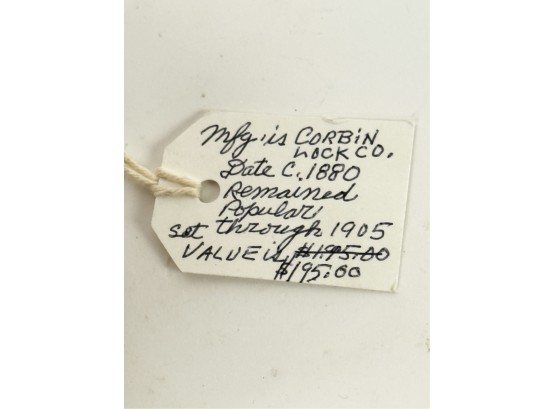 Mfg. is CORBIN
LOCK CO.
Date C. 1880
Remained
Popular
set through 1905
VALUE is $195.00
$195.00